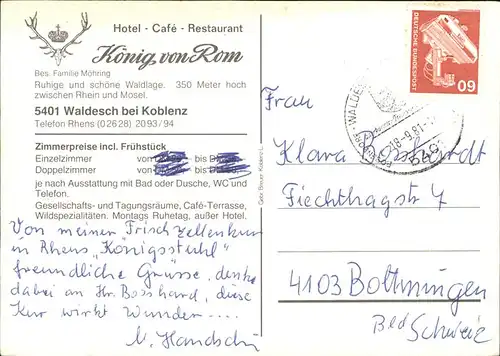 Hotel - Café - Restaurant
König von Rom
Bes. Familie Möhring
Ruhige und schöne Waldlage. 350 Meter hoch
zwischen Rhein und Mosel.
5401 Waldesch bei Koblenz
Telefon Rhens (0 26 28) 20 93 / 94
Zimmerpreise incl. Frühstück
Einzelzimmer von bis
Doppelzimmer von bis
je nach Ausstattung mit Bad oder Dusche, WC und
Telefon.
Gesellschafts- und Tagungsräume, Café-Terrasse,
Wildspezialitäten. Montags Ruhetag, außer Hotel.
Von meiner Frischzellenkur
in Rhens „Königsstuhl"
freundliche Grüsse, denke
dabei an Hr. Bosshard, diese
Kur wirkt Wunder....
DEUTSCHE BUNDESPOST
60
18.-9.81
Frau
Klara Bosshardt
Fiechthagstr 7
4103 Bottmingen
Schweiz